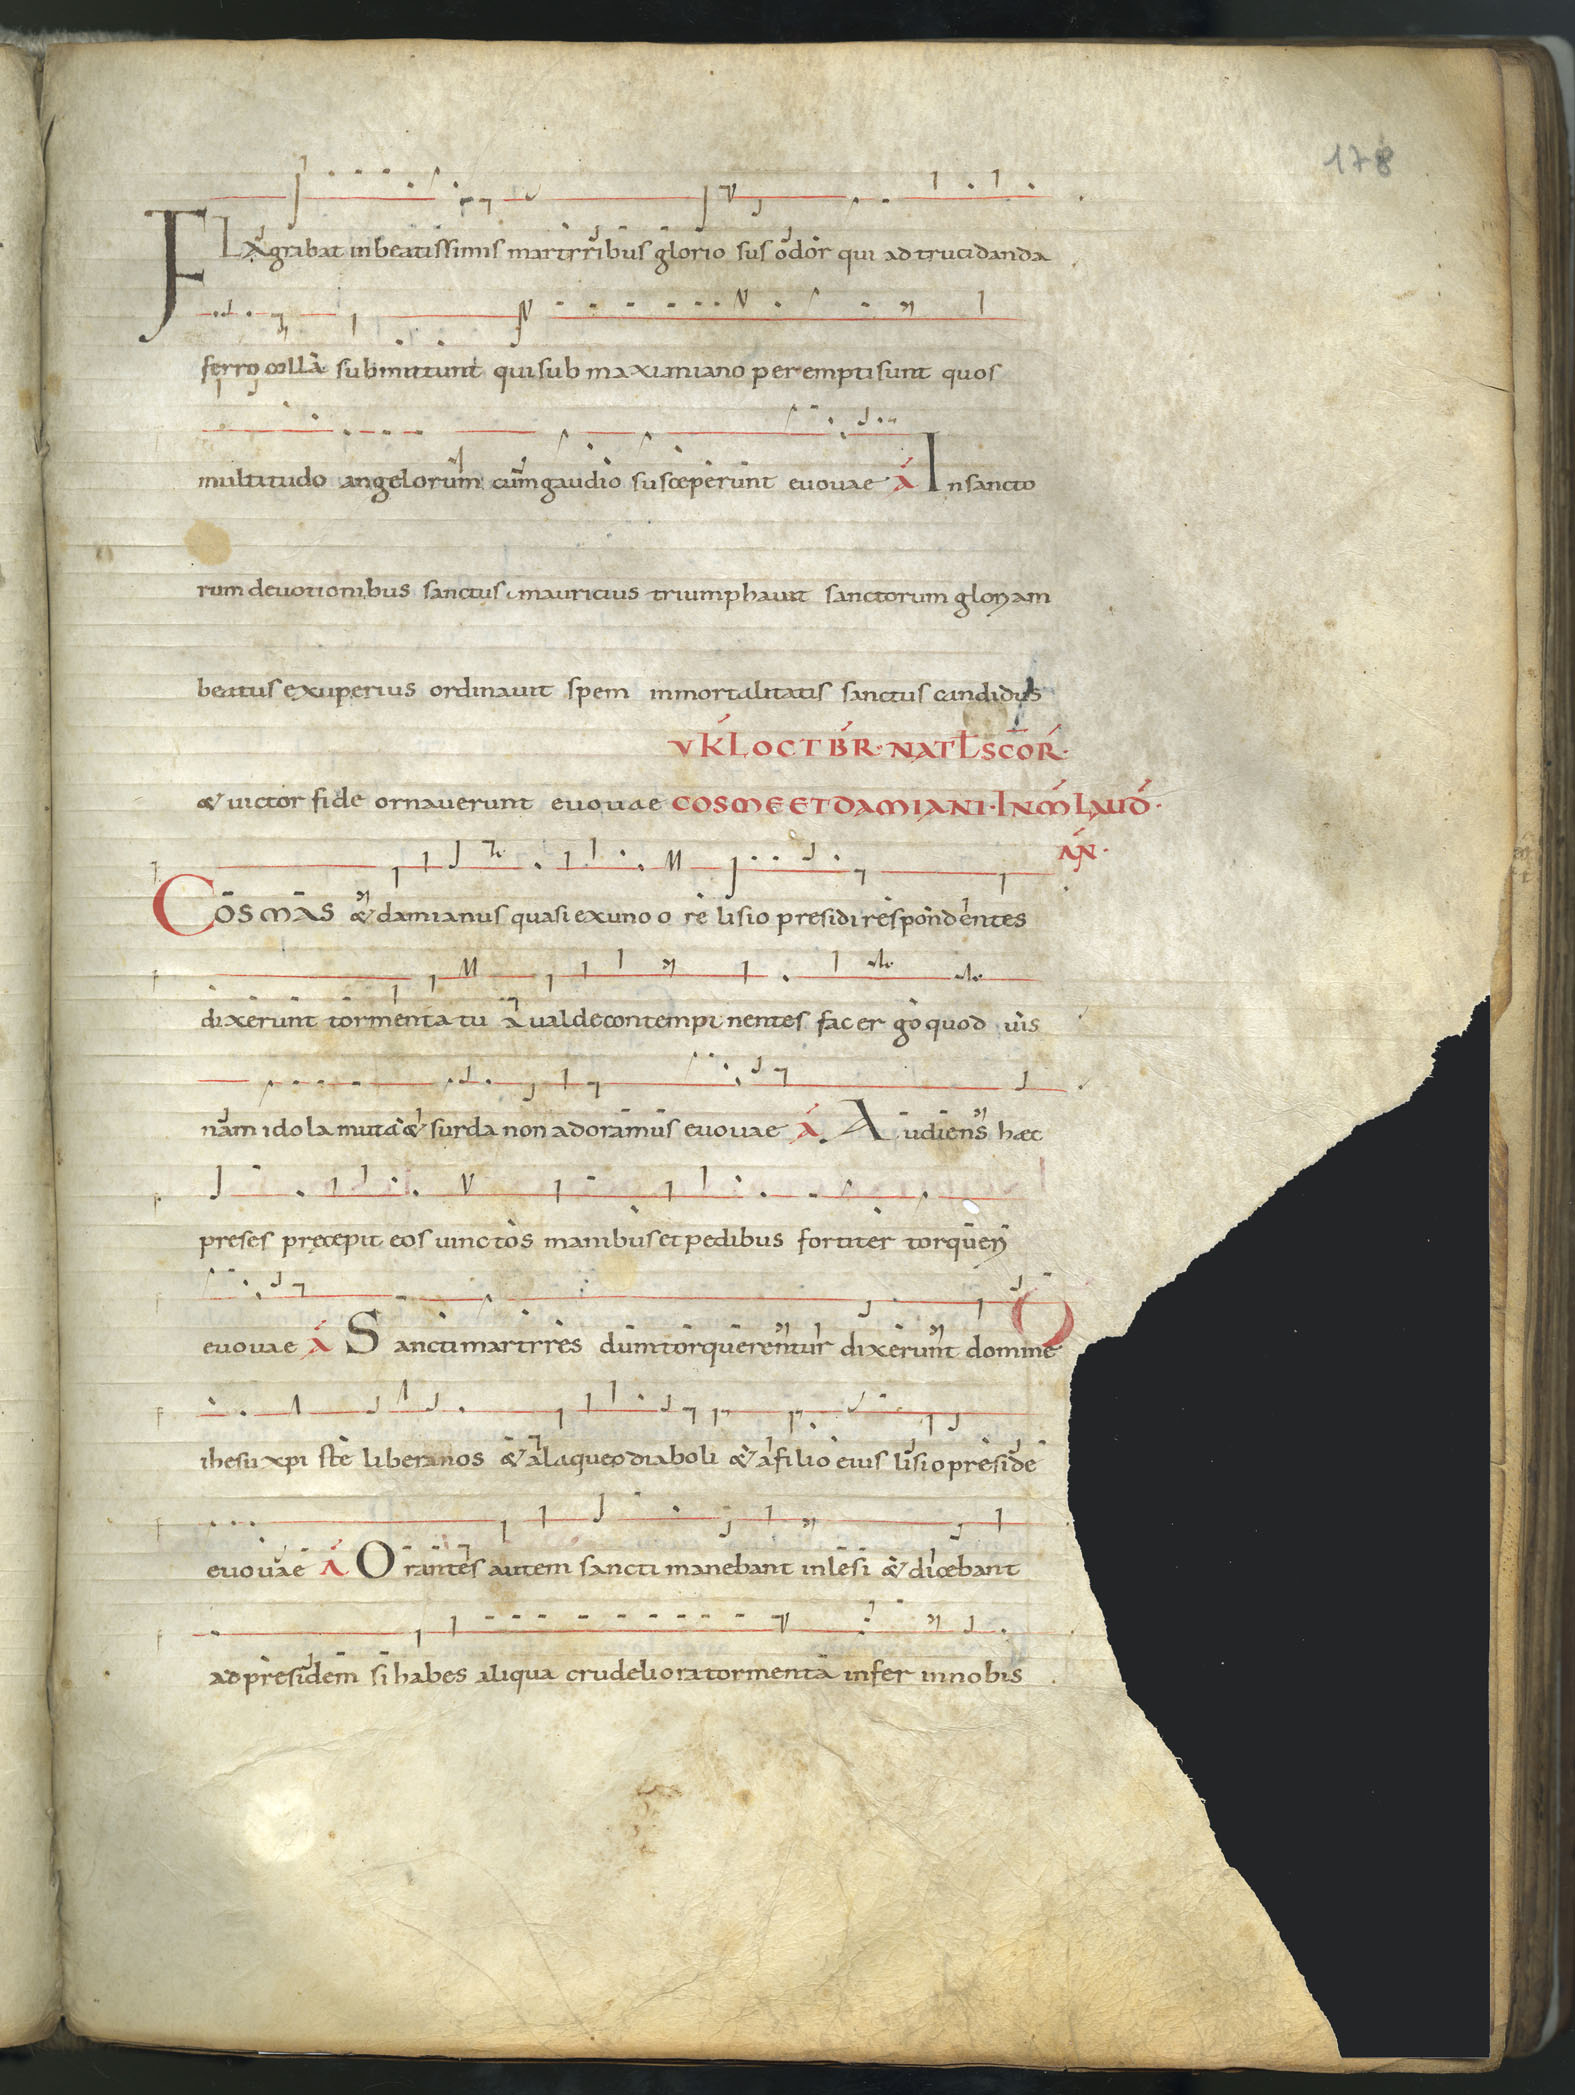 178
FLAgrabat in beatissimis martyribus glorio sus odor qui ad trucidanda
ferro colla submittunt qui sub maximiano perempti sunt quos
multitudo angelorum cum gaudio susceperunt euouae A In sancto
rum deuotionibus sanctus mauricius triumphauit sanctorum gloriam
beatus exuperius ordinauit spem inmortalitatis sanctus candidus
V KL OCTBR. NATL SCOR.
& uictor fide ornauerunt euouae COSME ET DAMIANI. IN M LAUD.
AN.
COSMAS & damianus quasi ex uno o re lisio presidi respondentes
dixerunt tormenta tu a ualde contempnentes fac er go quod uis
nam idola muta & surda non adoramus euouae A Audiens haec
preses precepit eos uinctos manibus et pedibus fortiter torqueri
euouae A Sancti martyres dum torquerentur dixerunt domine
ihesu xpi ste libera nos & a laqueo diaboli & a filio eius lisio preside
euouae A Orantes autem sancti manebant inlesi & dicebant
ad presidem si habes aliqua crudeliora tormenta infer in nobis